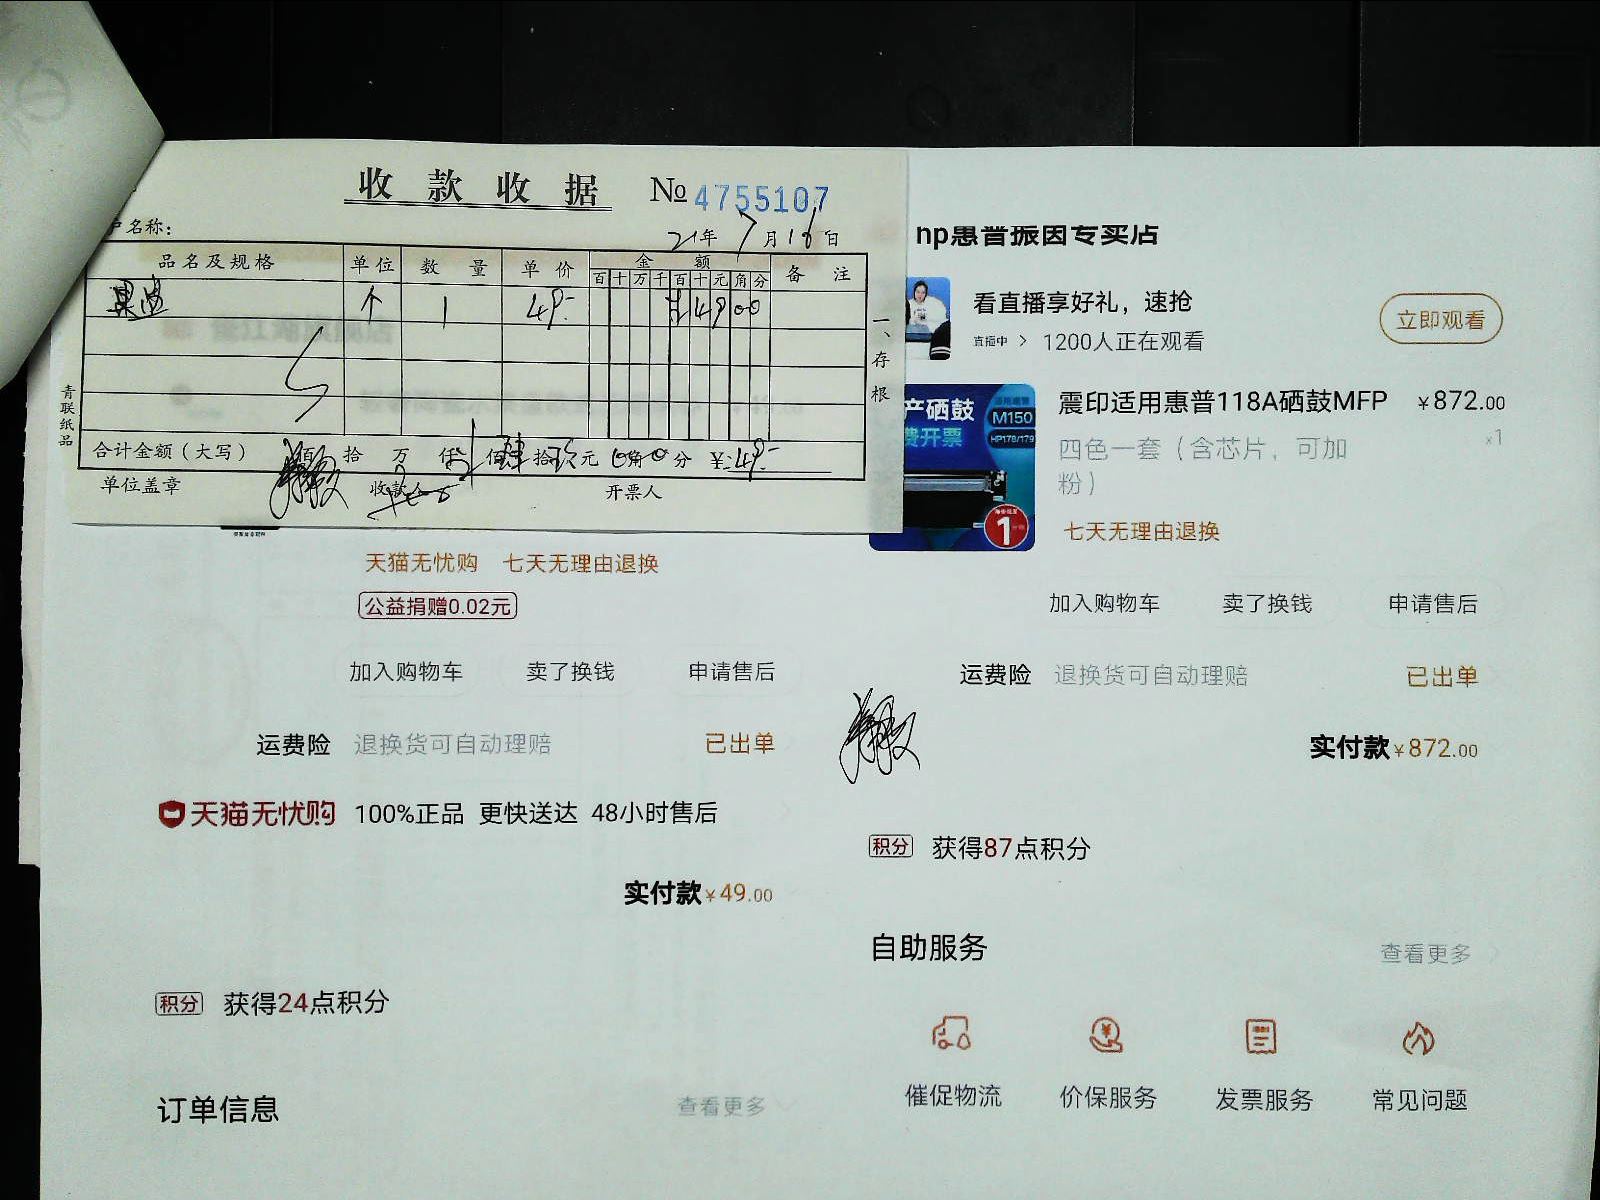 收款收据 № 4755107
户名称：
21年7月16日
品名及规格 单位 数量 单价 金额 备注
百十万千百十元角分
个 1 49- 4900
一、存根
青联纸品
合计金额（大写） 佰 拾 万 仟 佰肆拾玖元0角0分 ¥:49-
单位盖章 收款人 开票人
天猫无忧购 七天无理由退换
公益捐赠0.02元
加入购物车 卖了换钱 申请售后
运费险 退换货可自动理赔 已出单
天猫无忧购 100%正品 更快送达 48小时售后
实付款¥49.00
积分 获得24点积分
订单信息 查看更多
hp惠普振因专卖店
看直播享好礼，速抢
直播中 > 1200人正在观看
立即观看
产硒鼓
费开票
M150
HP178/179
1
震印适用惠普118A硒鼓MFP ¥872.00
四色一套（含芯片，可加 x1
粉）
七天无理由退换
加入购物车 卖了换钱 申请售后
运费险 退换货可自动理赔 已出单
实付款¥872.00
积分 获得87点积分
自助服务 查看更多
催促物流 价保服务 发票服务 常见问题